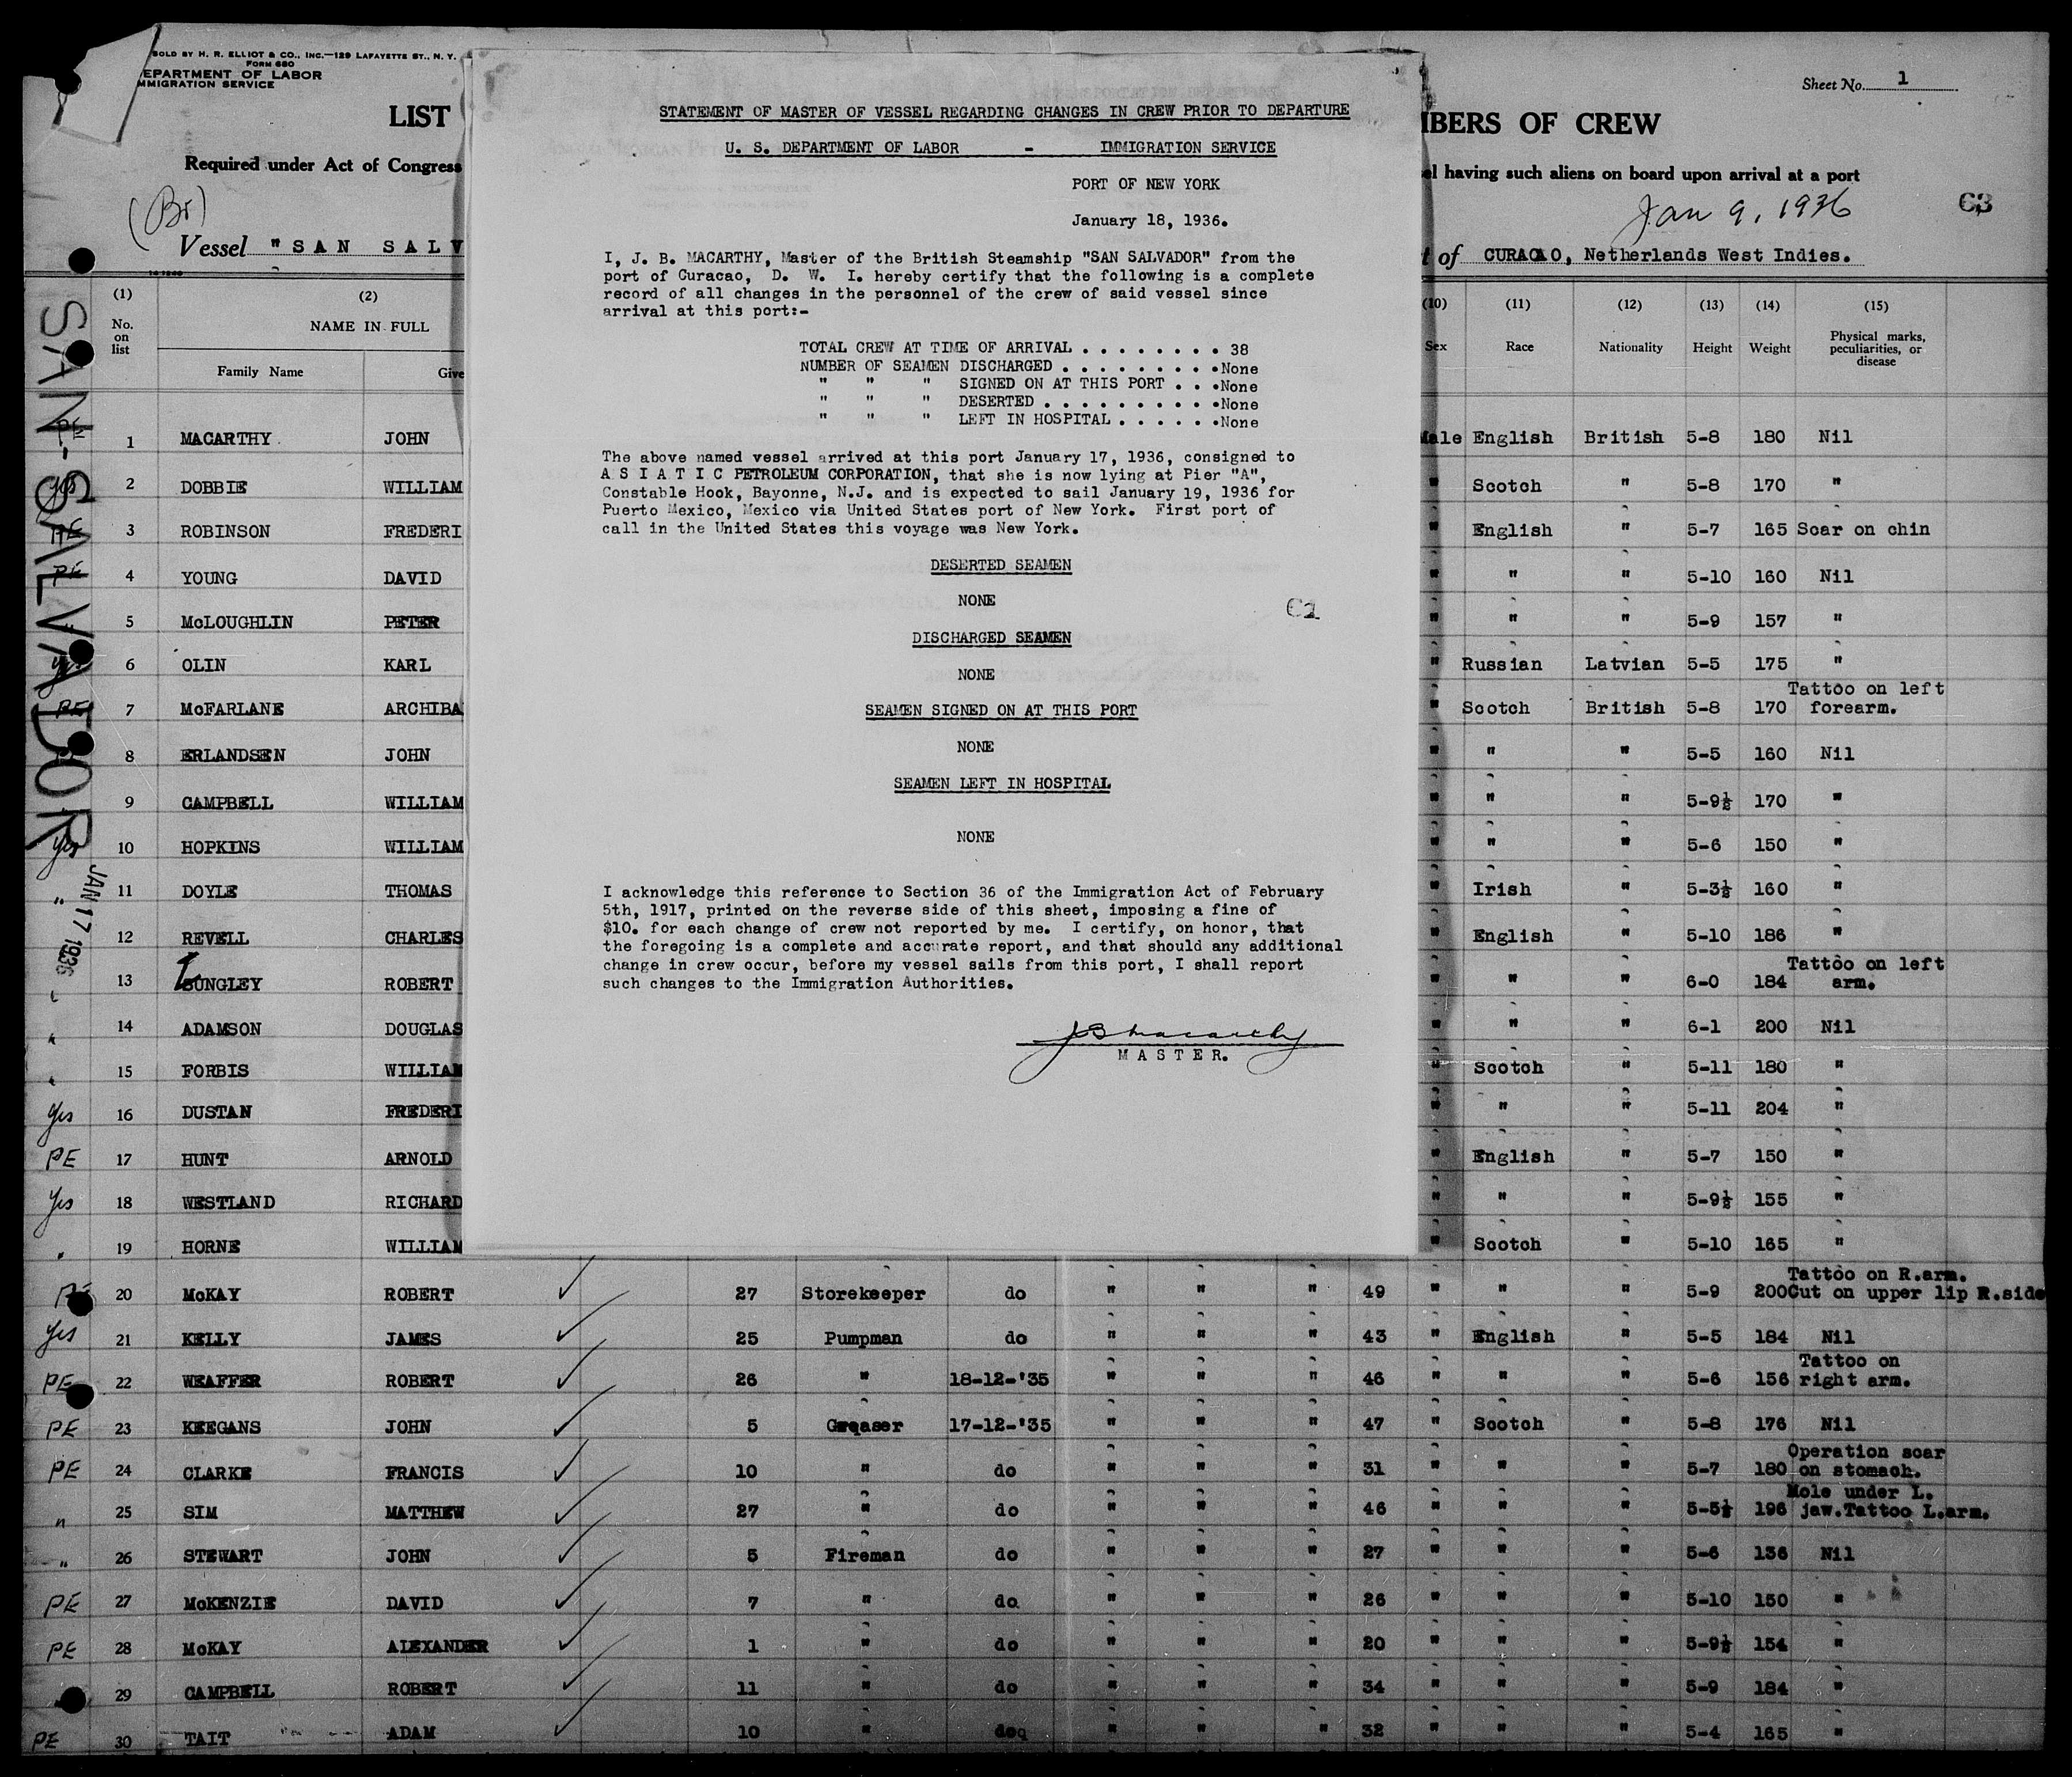 SOLD BY H. R. ELLIOT & CO., INC.—129 LAFAYETTE ST., N. Y.
FORM 680
EPARTMENT OF LABOR
MMIGRATION SERVICE
LIST
Required under Act of Congress
(Br)
Vessel "SAN SALV
SAN-SALVADOR
JAN 17 1936
Sheet No. 1
MBERS OF CREW
el having such aliens on board upon arrival at a port
Jan 9, 1936
C3
t of CURACAO, Netherlands West Indies.
STATEMENT OF MASTER OF VESSEL REGARDING CHANGES IN CREW PRIOR TO DEPARTURE
U. S. DEPARTMENT OF LABOR - IMMIGRATION SERVICE
PORT OF NEW YORK
January 18, 1936.
I, J. B. MACARTHY, Master of the British Steamship "SAN SALVADOR" from the
port of Curacao, D. W. I. hereby certify that the following is a complete
record of all changes in the personnel of the crew of said vessel since
arrival at this port:-
TOTAL CREW AT TIME OF ARRIVAL . . . . . . . . 38
NUMBER OF SEAMEN DISCHARGED . . . . . . . . .None
" " " SIGNED ON AT THIS PORT . . .None
" " " DESERTED . . . . . . . . . .None
" " " LEFT IN HOSPITAL . . . . . .None
The above named vessel arrived at this port January 17, 1936, consigned to
A S I A T I C PETROLEUM CORPORATION, that she is now lying at Pier "A",
Constable Hook, Bayonne, N.J. and is expected to sail January 19, 1936 for
Puerto Mexico, Mexico via United States port of New York. First port of
call in the United States this voyage was New York.
DESERTED SEAMEN
NONE
C1
DISCHARGED SEAMEN
NONE
SEAMEN SIGNED ON AT THIS PORT
NONE
SEAMEN LEFT IN HOSPITAL
NONE
I acknowledge this reference to Section 36 of the Immigration Act of February
5th, 1917, printed on the reverse side of this sheet, imposing a fine of
$10. for each change of crew not reported by me. I certify, on honor, that
the foregoing is a complete and accurate report, and that should any additional
change in crew occur, before my vessel sails from this port, I shall report
such changes to the Immigration Authorities.
J B Macarthy
M A S T E R.
(1) (2) (10) (11) (12) (13) (14) (15)
No. on list NAME IN FULL Sex Race Nationality Height Weight Physical marks, peculiarities, or disease
Family Name Give
1 MACARTHY JOHN Male English British 5-8 180 Nil
2 DOBBIE WILLIAM " Scotch " 5-8 170 "
3 ROBINSON FREDERI " English " 5-7 165 Scar on chin
4 YOUNG DAVID " " " 5-10 160 Nil
5 McLOUGHLIN PETER " " " 5-9 157 "
6 OLIN KARL " Russian Latvian 5-5 175 "
7 McFARLANE ARCHIBA " Scotch British 5-8 170 Tattoo on left forearm.
8 ERLANDSEN JOHN " " " 5-5 160 Nil
9 CAMPBELL WILLIAM " " " 5-9½ 170 "
Yes 10 HOPKINS WILLIAM " " " 5-6 150 "
" 11 DOYLE THOMAS " Irish " 5-3½ 160 "
12 REVELL CHARLES " English " 5-10 186 "
13 LONGLEY ROBERT " " " 6-0 184 Tattoo on left arm.
14 ADAMSON DOUGLAS " " " 6-1 200 Nil
15 FORBIS WILLIAM " Scotch " 5-11 180 "
Yes 16 DUSTAN FREDERI " " " 5-11 204 "
PE 17 HUNT ARNOLD " English " 5-7 150 "
Yes 18 WESTLAND RICHARD " " " 5-9½ 155 "
" 19 HORNE WILLIAM " Scotch " 5-10 165 "
PE 20 McKAY ROBERT ✓ 27 Storekeeper do " " " 49 " " " 5-9 200 Tattoo on R.arm. Cut on upper lip R.side
Yes 21 KELLY JAMES ✓ 25 Pumpman do " " " 43 " English " 5-5 184 Nil
PE 22 WEAFFER ROBERT ✓ 26 " 18-12-'35 " " " 46 " " " 5-6 156 Tattoo on right arm.
PE 23 KEEGANS JOHN ✓ 5 Greaser 17-12-'35 " " " 47 " Scotch " 5-8 176 Nil
PE 24 CLARKE FRANCIS ✓ 10 " do " " " 31 " " " 5-7 180 Operation scar on stomach.
" 25 SIM MATTHEW ✓ 27 " do " " " 46 " " " 5-5½ 196 Mole under L. jaw.Tattoo L.arm.
" 26 STEWART JOHN ✓ 5 Fireman do " " " 27 " " " 5-6 136 Nil
PE 27 McKENZIE DAVID ✓ 7 " do " " " 26 " " " 5-10 150 "
PE 28 McKAY ALEXANDER ✓ 1 " do " " " 20 " " " 5-9½ 154 "
29 CAMPBELL ROBERT ✓ 11 " do " " " 34 " " " 5-9 184 "
PE 30 TAIT ADAM ✓ 10 " do " " " 32 " " " 5-4 165 "